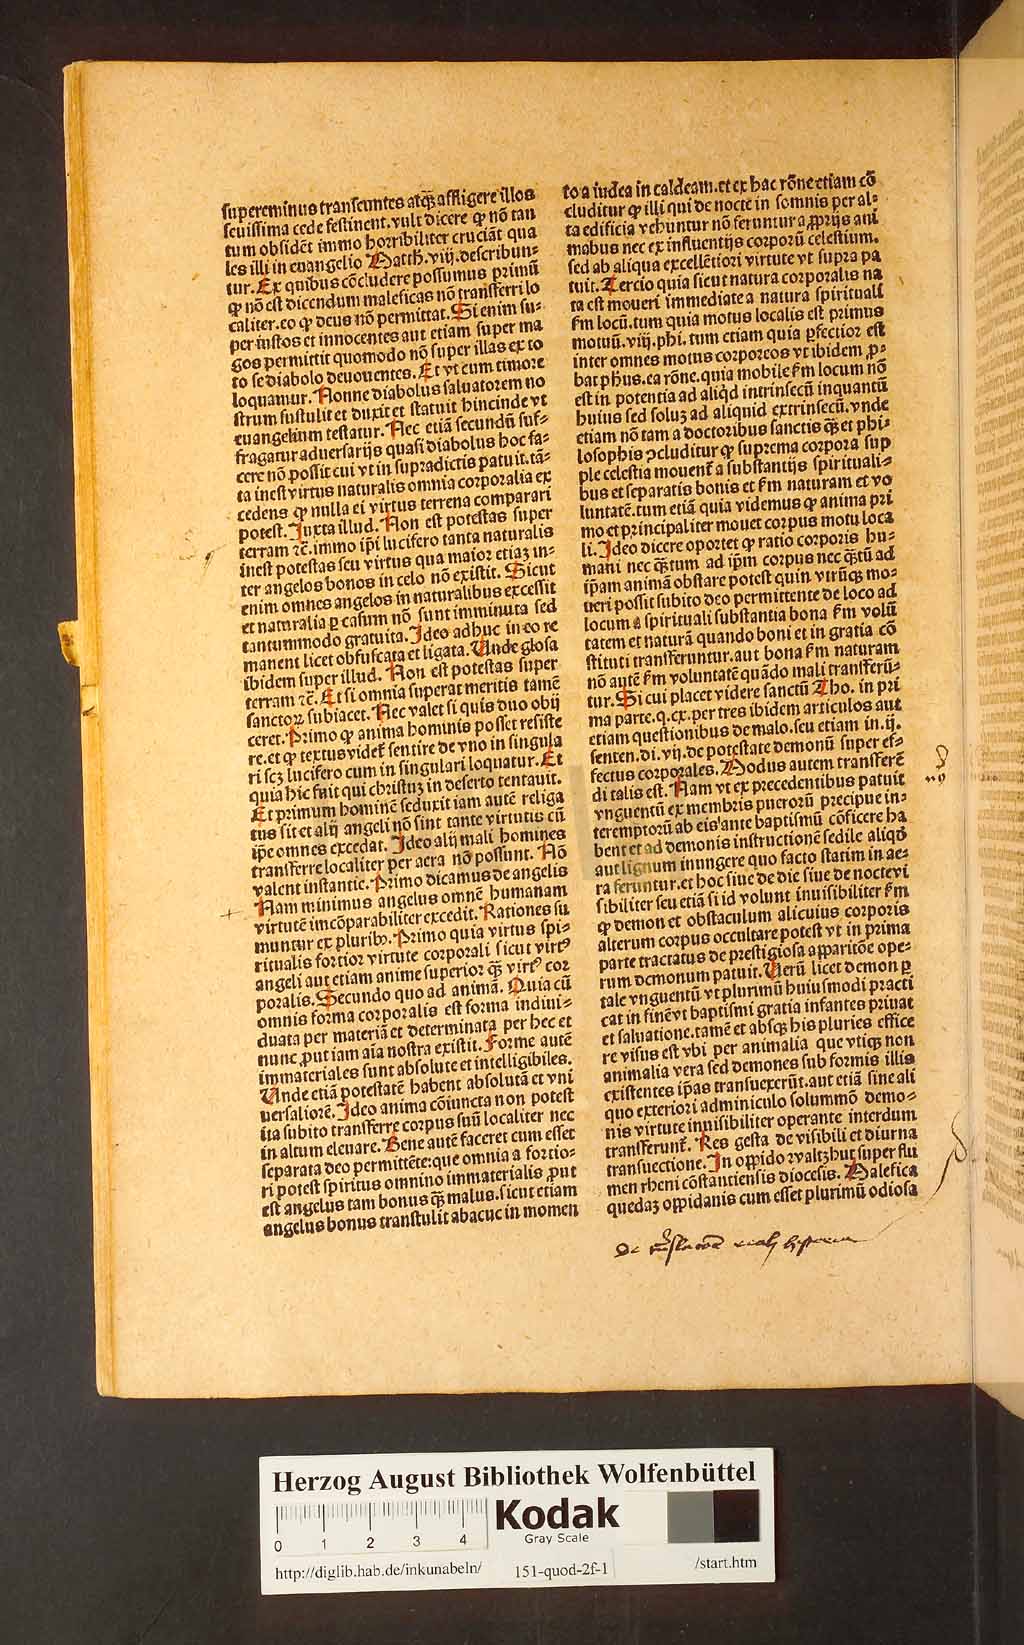 supereminus transeuntes atqꝫ affligere illos
seuissima cede festinent. vult dicere ꝙ nō tan
tum obsidēt immo horribiliter cruciāt qua
les illi in euangelio Matth. viij. describun⸗
tur. Ex quibus cōcludere possumus primū
ꝙ nō est dicendum maleficas nō transferri lo
caliter. eo ꝙ deus nō permittat. Si enim su⸗
per iustos et innocentes aut etiam super ma
gos permittit quomodo nō super illas ex to
to se diabolo deuouentes. Et vt cum timore
loquamur. Nonne diabolus saluatorem no
strum sustulit et duxit et statuit hincinde vt
euangelium testatur. Nec etiā secundū suf⸗
fragatur aduersarijs quasi diabolus hoc fa⸗
cere nō possit cui vt in supradictis patuit. tā⸗
ta inest virtus naturalis omnia corporalia ex
cedens ꝙ nulla ei virtus terrena comparari
potest. Juxta illud. Non est potestas super
terram ꝛc̄. immo ip̄i lucifero tanta naturalis
inest potestas seu virtus qua maior etiaꝫ in⸗
ter angelos bonos in celo nō existit. Sicut
enim omnes angelos in naturalibus excessit
et naturalia ꝑ casum nō sunt imminuta sed
tantummodo gratuita. Ideo adhuc in eo re
manent licet obfuscata et ligata. Unde glosa
ibidem super illud. Non est potestas super
terram ꝛc̄. Et si omnia superat meritis tamē
sanctoꝝ subiacet. Nec valet si quis duo obij
ceret. Primo ꝙ anima hominis posset resiste
re. et ꝙ textus videt̄ sentire de vno in singula
ri scꝫ lucifero cum in singulari loquatur. Et
quia hic fuit qui christuꝫ in deserto tentauit.
Et primum hominē seduxit iam autē religa
tus sit et alij angeli nō sint tante virtutis cū
ip̄e omnes excedat. Ideo alij mali homines
transferre localiter per aera nō possunt. Nō
valent instantie. Primo dicamus de angelis
Nam minimus angelus omnē humanam
virtutē imcōparabiliter excedit. Rationes su
muntur ex pluribꝰ. Primo quia virtus spi⸗
ritualis fortior virtute corporali sicut virtꝰ
angeli aut etiam anime superior qꝫ̄ virtꝰ cor
poralis. Secundo quo ad animā. Quia cū
omnis forma corporalis est forma indiui⸗
duata per materiā et determinata per hec et
nunc ꝓut iam aīa nostra existit. Forme autē
immateriales sunt absolute et intelligibiles.
Unde etiā potestatē habent absolutā et vni
uersaliorē. Ideo anima cōiuncta non potest
ita subito transferre corpus suū localiter nec
in altum eleuare. Bene autē faceret cum esset
separata deo permittēte: que omnia a fortio⸗
ri potest spiritus omnino immaterialis ꝓut
est angelus tam bonus qꝫ̄ malus. sicut etiam
angelus bonus transtulit abacuc in momen
to a iudea in caldeam. et ex hac rōne etiam cō
cluditur ꝙ illi qui de nocte in somnis per al⸗
ta edificia vehuntur nō feruntur a ꝓprijs ani
mabus nec ex influentijs corporū celestium.
sed ab aliqua excellētiori virtute vt supra pa
tuit. Tercio quia sicut natura corporalis na
ta est moueri immediate a natura spirituali
s̄m locū. tum quia motus localis est primus
motuū. viij. phi. tum etiam quia ꝑfectior est
inter omnes motus corporeos vt ibidem ꝓ⸗
bat ph̄us. ea rōne. quia mobile s̄m locum nō
est in potentia ad aliqd̓ intrinsecū inquantū
huius sed soluꝫ ad aliquid extrinsecū. vnde
etiam nō tam a doctoribus sanctis qꝫ̄ et phi⸗
losophis ꝯcluditur ꝙ suprema corpora sup
ple celestia mouent̄ a substantijs spirituali⸗
bus et separatis bonis et s̄m naturam et vo
luntatē. tum etiā quia videmus ꝙ anima pri
mo et principaliter mouet corpus motu loca
li. Ideo dicere oportet ꝙ ratio corporis hu⸗
mani nec qꝫ̄tum ad ip̄m corpus nec qꝫ̄tū ad
ip̄am animā obstare potest quin vtrūqꝫ mo⸗
ueri possit subito deo permittente de loco ad
locum a spirituali substantia bona s̄m volū
tatem et naturā quando boni et in gratia cō
stituti transferuntur. aut bona s̄m naturam
nō autē s̄m voluntatē quādo mali transferū⸗
tur. Si cui placet videre sanctū Tho. in pri
ma parte. q. cx. per tres ibidem articulos aut
etiam questionibus de malo. seu etiam in. ij.
senten. di. vij. de potestate demonū super ef⸗
fectus corporales. Modus autem transferē
di talis est. Nam vt ex precedentibus patuit
vnguentū ex membris puerorū precipue in⸗
teremptorū ab eis ante baptismū cōficere ha
bent et ad demonis instructionē sedile aliqd̓
aut lignum inungere quo facto statim in ae⸗
ra feruntur. et hoc siue de die siue de nocte vi
sibiliter seu etiā si id volunt inuisibiliter s̄m
ꝙ demon et obstaculum alicuius corporis
alterum corpus occultare potest vt in prima
parte tractatus de prestigiosa apparitōe ope⸗
rum demonum patuit. Uerū licet demon ꝑ
tale vnguentū vt plurimū huiusmodi practi
cat in finē vt baptismi gratia infantes priuat
et saluatione. tamē et absqꝫ his pluries effice
re visus est vbi per animalia que vtiqꝫ non
animalia vera sed demones sub formis illis
existentes ip̄as transuexerūt. aut etiā sine ali
quo exteriori adminiculo solummō demo⸗
nis virtute inuisibiliter operante interdum
transferunt̄. Res gesta de visibili et diurna
transuectione. In oppido ꝛvaltzhut super flu
men rheni cōstantiensis diocesis. Malefica
quedaꝫ oppidanis cum esset plurimū odiosa
Herzog August Bibliothek Wolfenbüttel
0 1 2 3 4
Kodak
Gray Scale
http://diglib.hab.de/inkunabeln/
151-quod-2f-1
/start.htm